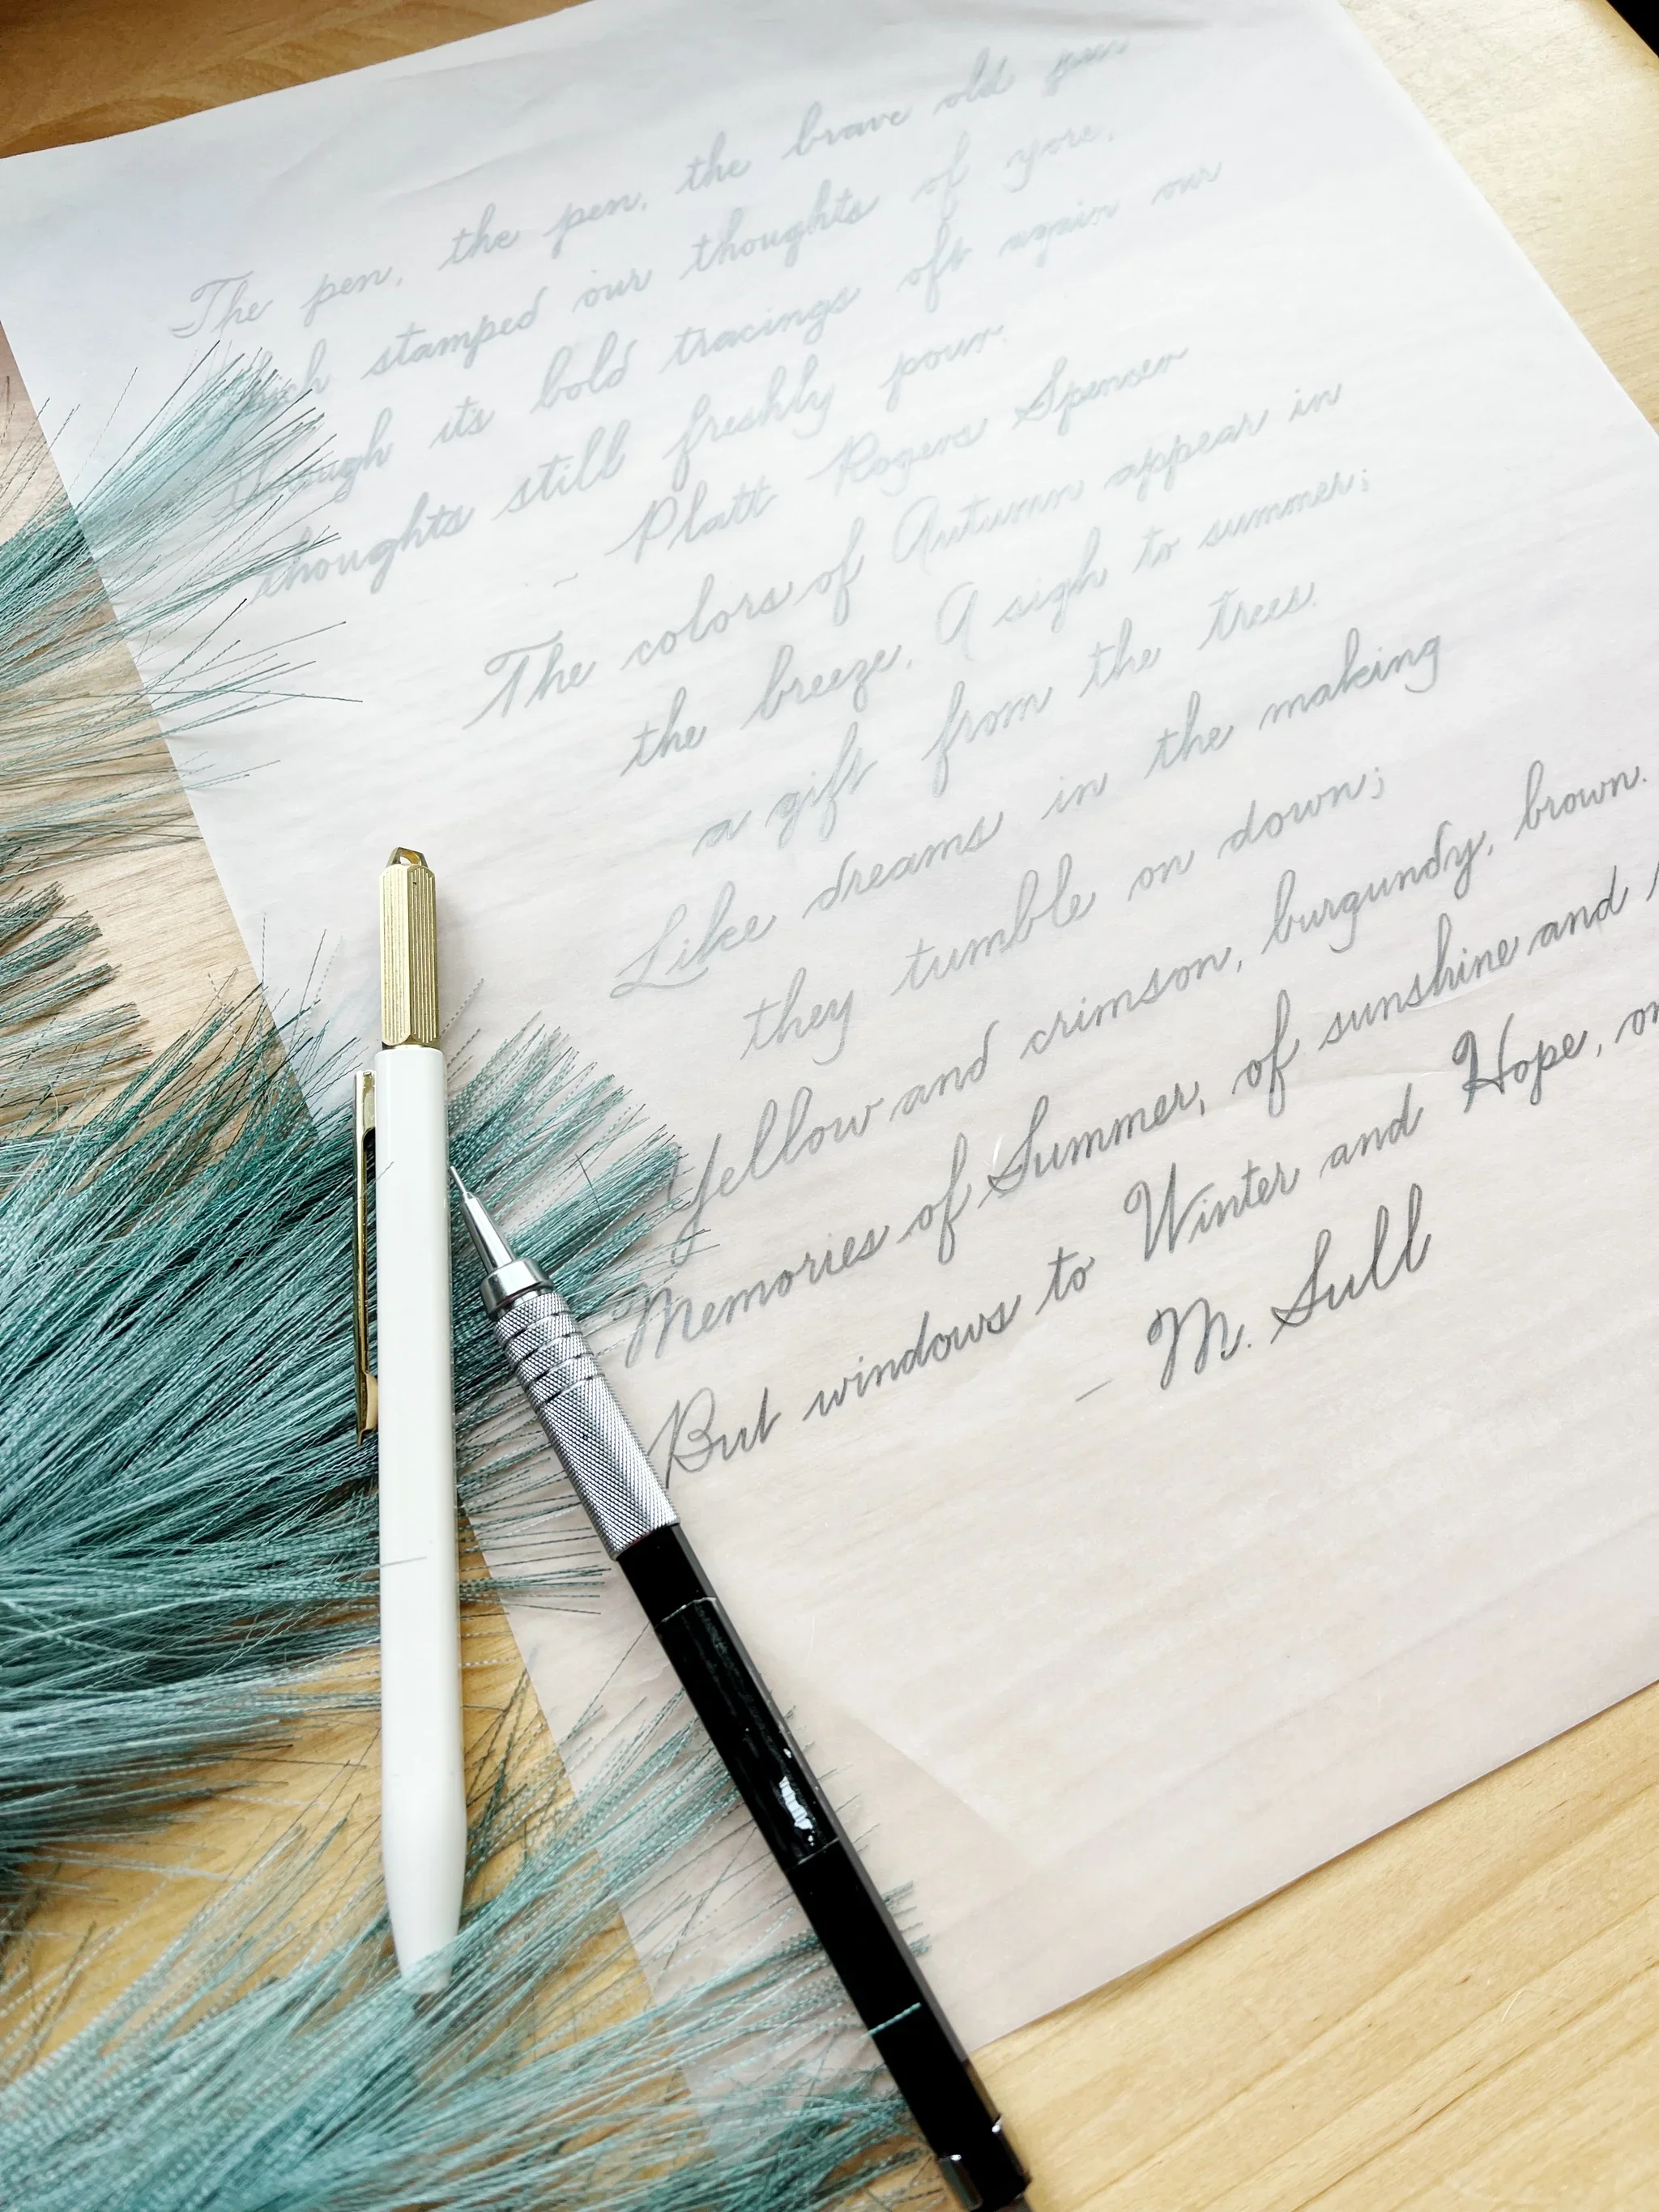 The pen, the pen, the brave old pen
stamped our thoughts of yore,
Though its bold tracings oft again our
thoughts still freshly pour.
~ Platt Rogers Spencer
The colors of Autumn appear in
the breeze. A sigh to summer;
a gift from the trees.
Like dreams in the making
they tumble on down;
Yellow and crimson, burgundy, brown.
Memories of Summer, of sunshine and
But windows to Winter and Hope,
- M. Sull